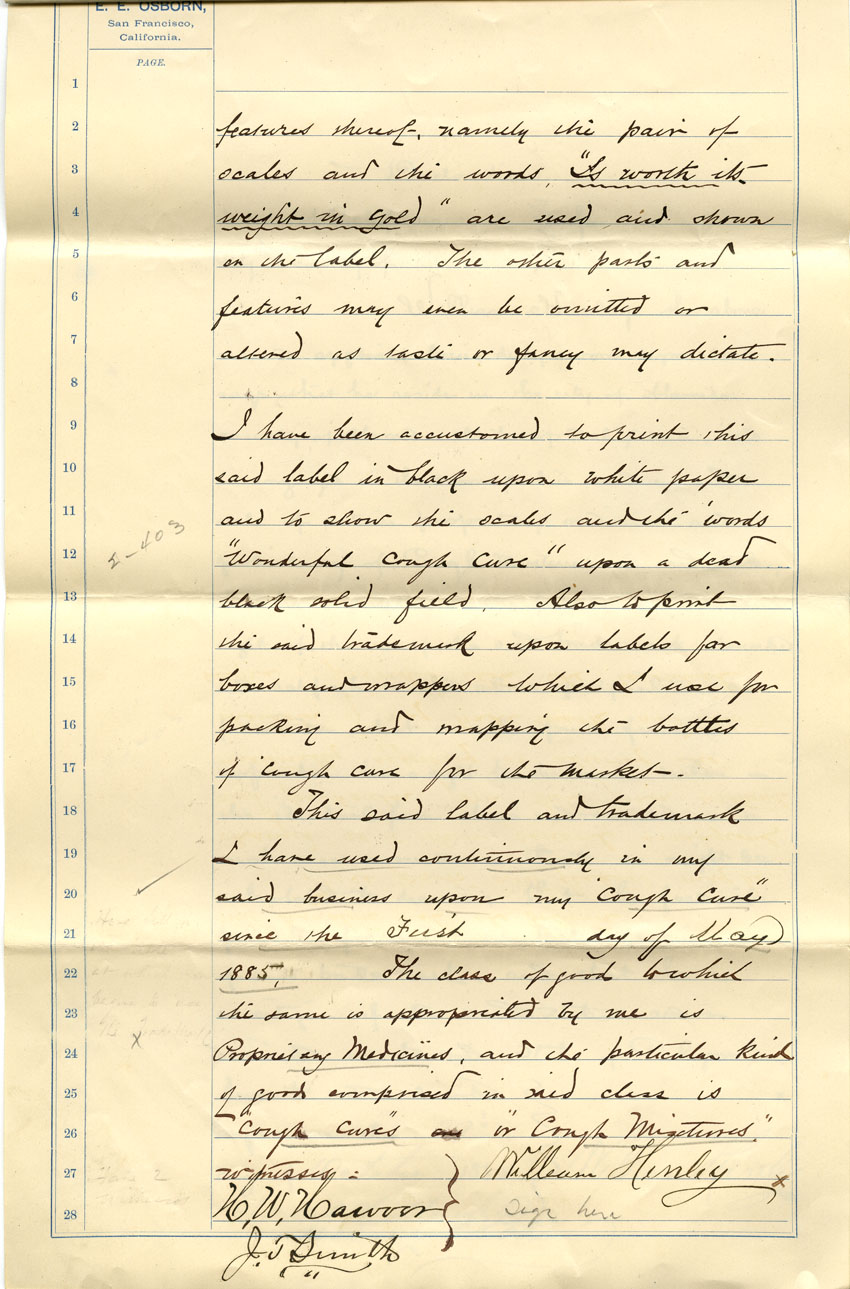 E. E. OSBORN,
San Francisco,
California.
PAGE.
1
2 features thereof, namely the pair of
3 scales and the words, "Is worth its
4 weight in gold" are used and shown
5 on the label. The other parts and
6 features may even be omitted or
7 altered as taste or fancy may dictate.
8
9 I have been accustomed to print this
10 said label in black upon white paper
11 and to show the scales and the words
12 "Wonderful Cough Cure" upon a dead
13 black solid field. Also to print
14 the said trademark upon labels for
15 boxes and wrappers which I use for
16 packing and wrapping the bottles
17 of cough cure for the market.
18 This said label and trademark
19 I have used continuously in my
20 said business upon my "Cough Cure"
21 since the First day of May
22 1885, The class of good to which
23 the same is appropriated by me is
24 Proprietary Medicines, and the particular kind
25 of goods comprised in said class is
26 "Cough Cures" or "or Cough Mixtures."
27 witnesses: William Henley x
28 H. W. sign here
J. T. Smith
2-403
x